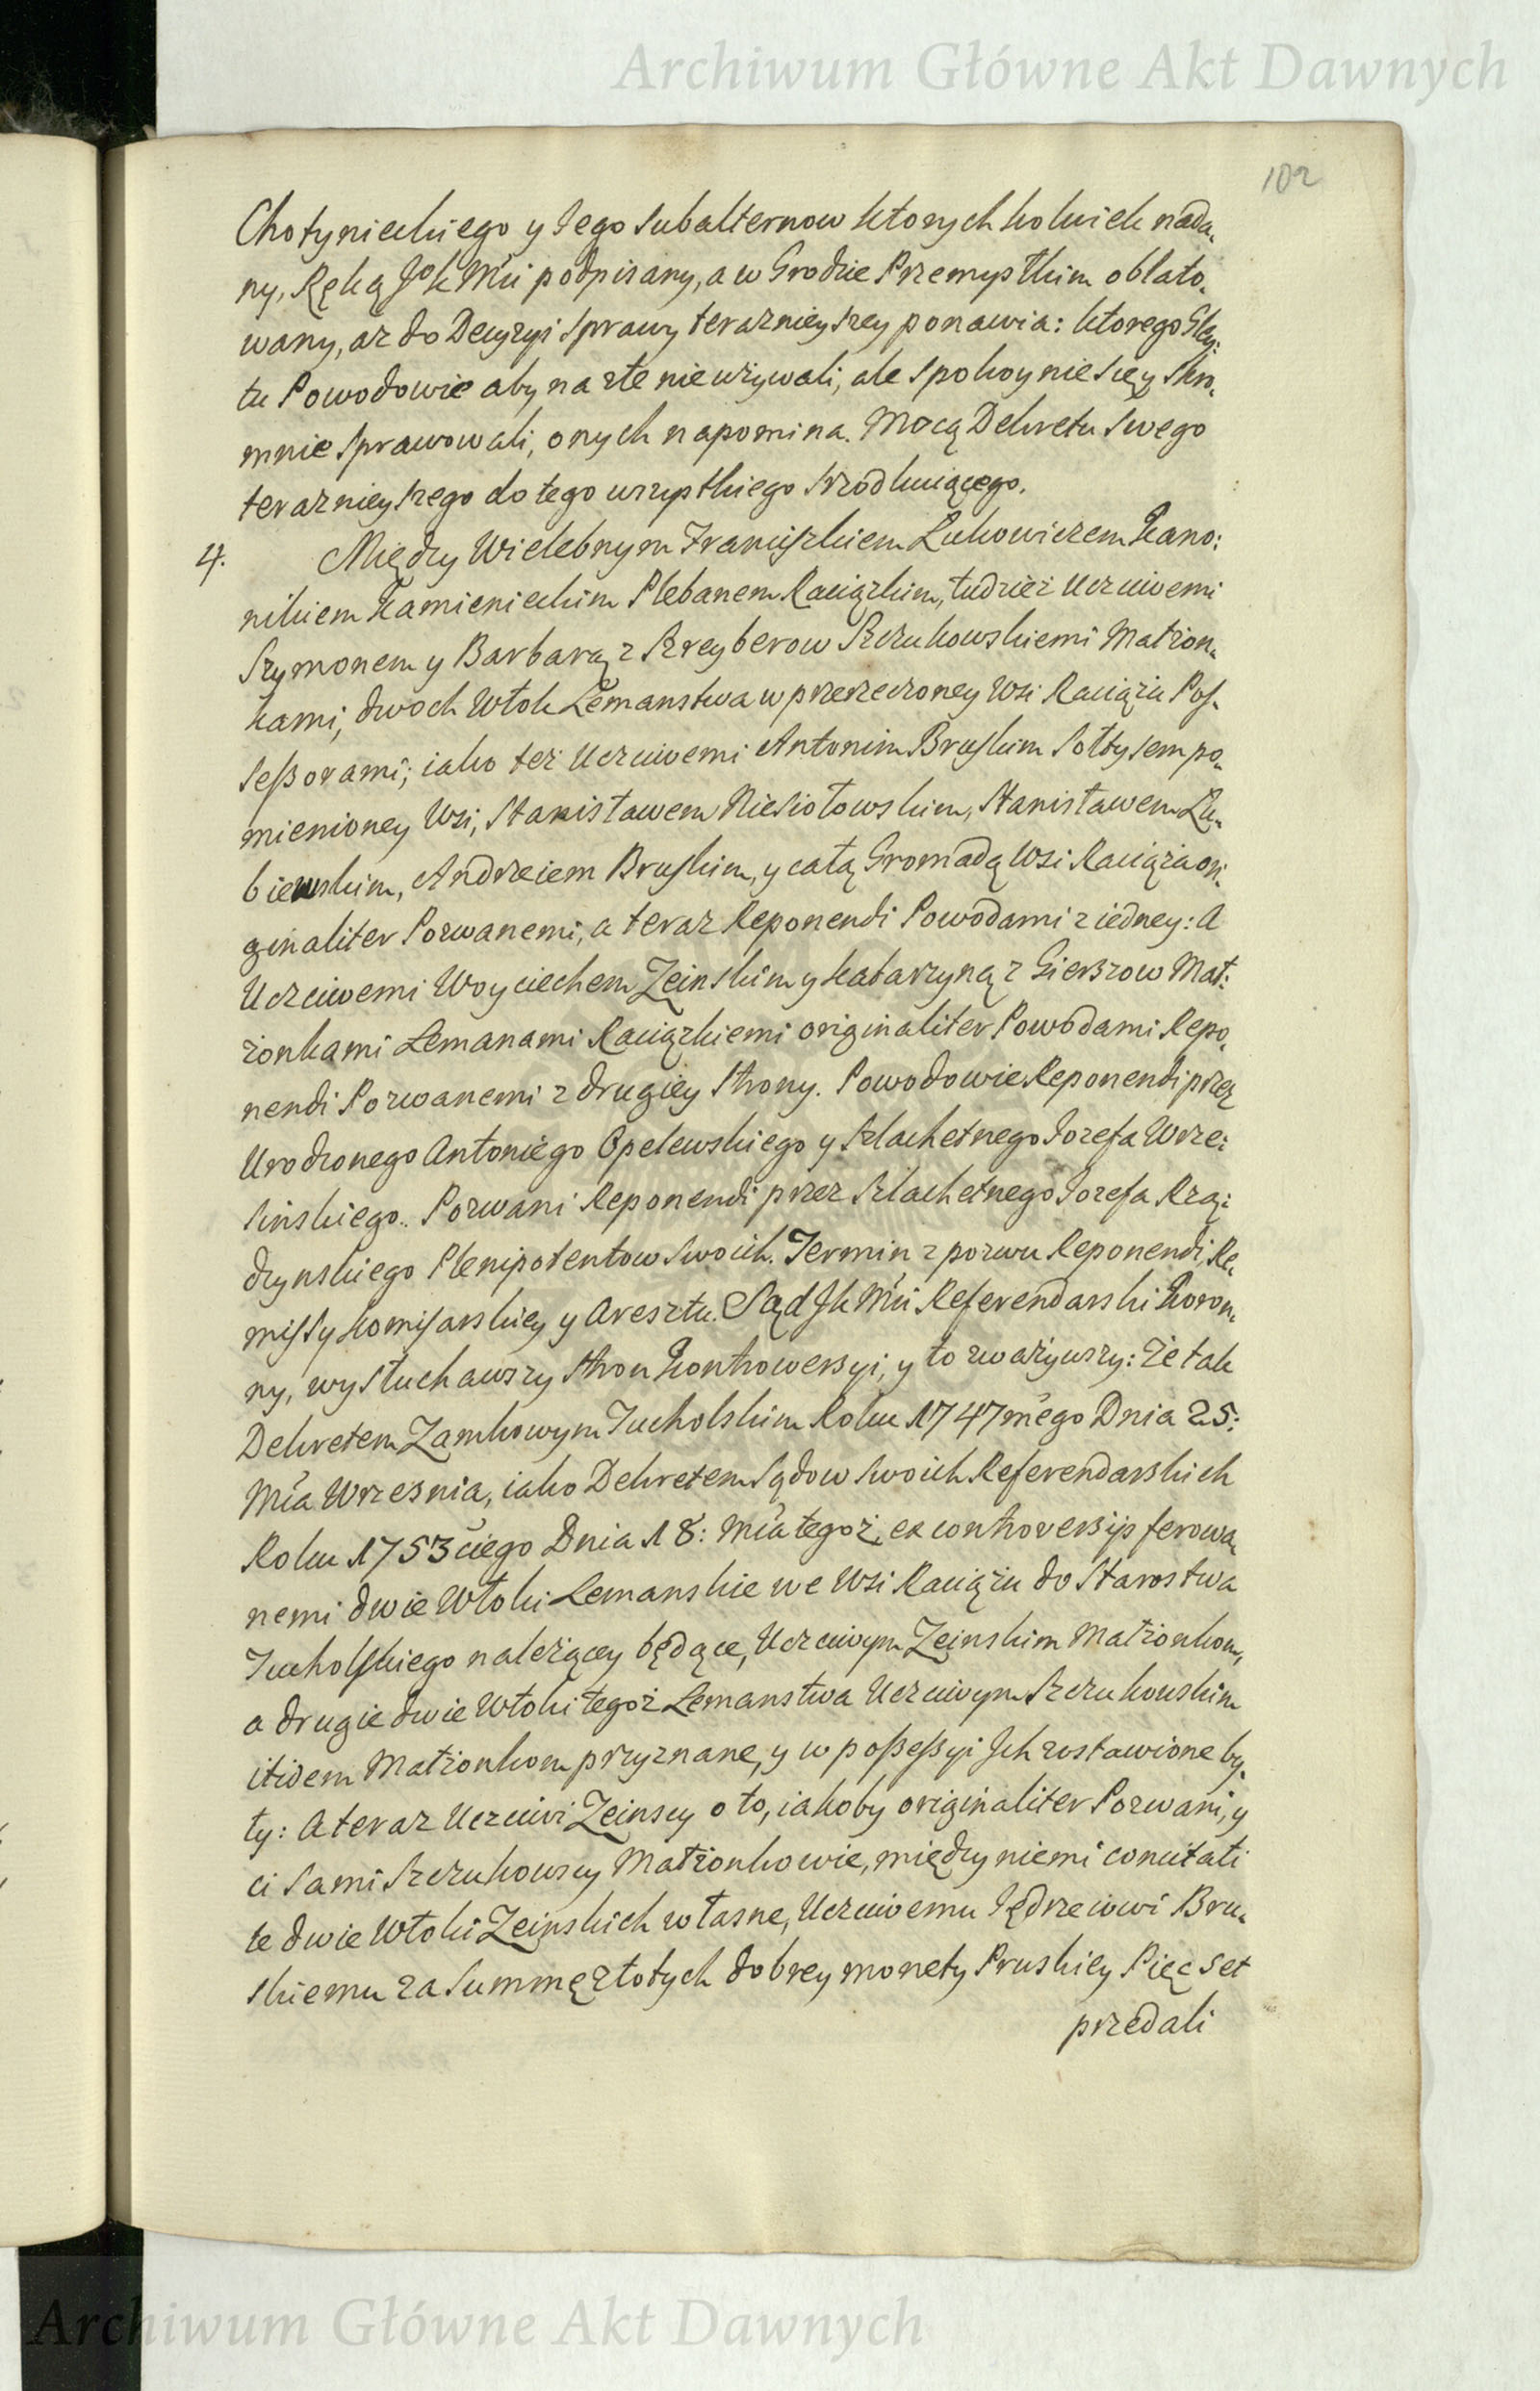 Archiwum Główne Akt Dawnych
102
Chotynieckiego y Jego Subalternow ktorychkolwiek nada„
ny, Ręką JKMći podpisany, a w Grodzie Przemyslkim oblato„
wany, aż do Decyzyi Sprawy terazniejszey ponawia: ktorego Gley:
tu Powodowie aby na złe nieużywali, ale spokoynie się y skro„
mnie sprawowali, onych napomina. Mocą Dekretu Swego
teraznieyszego do tego wszystkiego srzodkuiącego.
4. Między Wielebnym Franciszkiem Lukowiczem Kano:
nikiem Kamienieckim Plebanem Raciązkim, tudzież Uczciwemi
Szymonem y Barbarą z Szreyberow Szczukowskiemi Małżon„
kami, dwoch Włok Lemanstwa w przerzeczoney Wsi Raciążu Pos„
sessorami; iako też Uczciwemi Antonim Bruskim Sołtysem po„
mienioney Wsi, Stanisławem Niesiołowskim, Stanisławem Lu„
biewskim, Andrzeiem Bruskim, y całą Gromadą Wsi Raciąża ori„
ginaliter Pozwanemi, a teraz Reponendi Powodami z iedney: A
Uczciwemi Woyciechem Zeinskim y Katarzyną z Gierszow Mał:
żonkami Lemanami Raciązkiemi originaliter Powodami Repo„
nendi Pozwanemi z drugiey Strony. Powodowie Reponendi przez
Urodzonego Antoniego Opelewskiego y Szlachetnego Jozefa Wrze:
sinskiego. Pozwani Reponendi przez Szlachetnego Jozefa Rzą:
dzynskiego Plenipotentow Swoich. Termin z pozwu Reponendi, Re„
missy Komisarskiey y Aresztu. Sąd JKMći Referendarski Koron„
ny, wysłuchawszy Stron Kontrowersyi, y to zważywszy: Że tak
Dekretem Zamkowym Tucholskim Roku 1747mego Dnia 25:
Mća Wrzesnia, iako Dekretem Sądow Swoich Referendarskich
Roku 1753ciego Dnia 18: Mća tegoż, ex controversijs ferowa„
nemi dwie Włoki Lemanskie we Wsi Raciążu do Starostwa
Tucholskiego należącey będące, Uczciwym Zeinskim Małżonkom,
a drugie dwie Włoki tegoż Lemanstwa Uczciwym Szczukowskim
itidem Małżonkom przyznane, y w possessyi Jch zostawione by„
ły: A teraz Uczciwi Zeinscy o to, iakoby originaliter Pozwani, y
ci sami Szczukowscy Małżonkowie, między niemi concitati
te dwie Włoki Zeinskich własne, Uczciwemu Jędrzeiowi Bru„
skiemu za Summę złotych dobrey monety Pruskiey Pięćset
przedali
Archiwum Główne Akt Dawnych